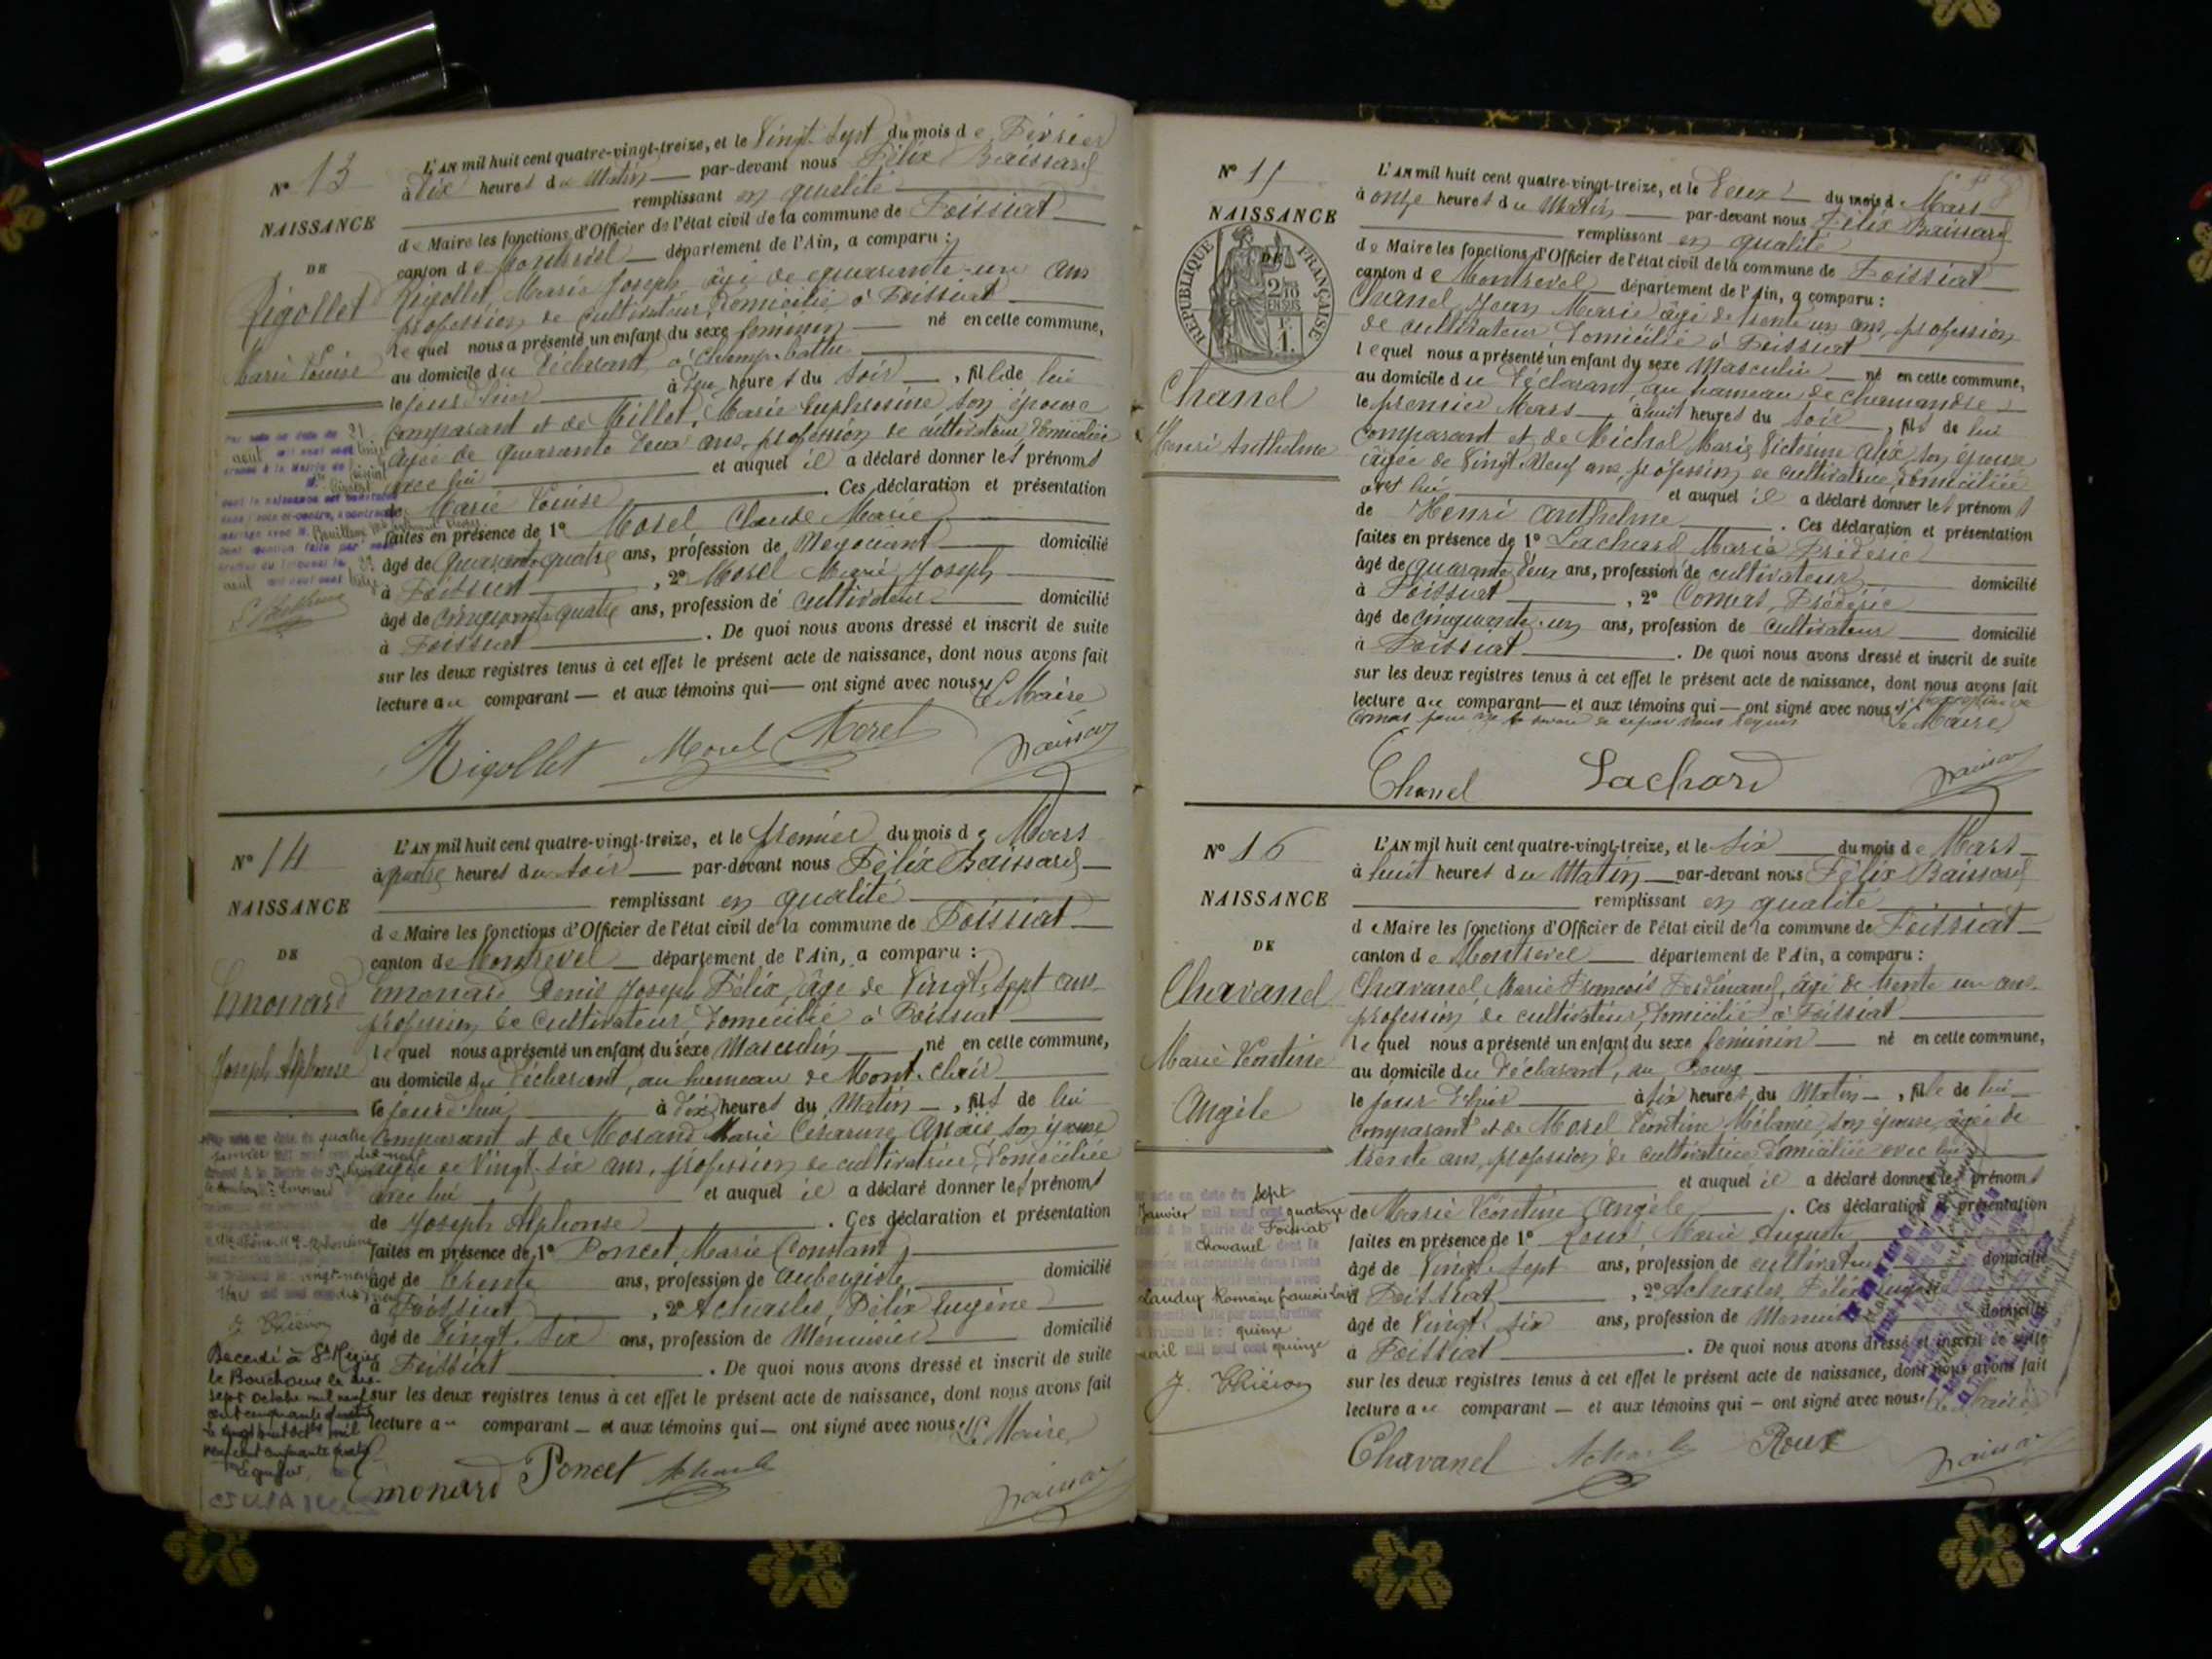 N° 13
NAISSANCE
DE
Rigollet
Marie Louise
L'AN mil huit cent quatre-vingt-treize, et le Vingt-Sept du mois de Février
à Dix heures du Matin par-devant nous Félix Baissard
remplissant en qualité
de Maire les fonctions d'Officier de l'état civil de la commune de Foissiat
canton de Montrevel département de l'Ain, a comparu :
Rigollet, Marie Joseph âgé de quarante-un ans
profession de cultivateur, domicilié à Foissiat
lequel nous a présenté un enfant du sexe féminin né en cette commune,
au domicile du déclarant, à Champ-battu
le jour d'hier à heures du Soir, fille de lui
comparant et de Millet, Marie Euphrosine son épouse
âgée de quarante deux ans, profession de cultivateur, domiciliée
avec lui et auquel il a déclaré donner les prénoms
de Marie Louise. Ces déclaration et présentation
faites en présence de 1° Morel Claude Marie
âgé de quarante quatre ans, profession de Négociant domicilié
à Foissiat, 2° Morel Marie Joseph
âgé de cinquante quatre ans, profession de cultivateur domicilié
à Foissiat. De quoi nous avons dressé et inscrit de suite
sur les deux registres tenus à cet effet le présent acte de naissance, dont nous avons fait
lecture au comparant et aux témoins qui ont signé avec nous
Le Maire
Rigollet Morel Morel Baissard
N° 14
NAISSANCE
DE
Emonard
Joseph Alphonse
L'AN mil huit cent quatre-vingt-treize, et le premier du mois de Mars
à quatre heures du Soir par-devant nous Félix Baissard
remplissant en qualité
de Maire les fonctions d'Officier de l'état civil de la commune de Foissiat
canton de Montrevel département de l'Ain, a comparu :
Emonard Denis Joseph Félix, âgé de Vingt-Sept ans
profession de cultivateur, domicilié à Foissiat
lequel nous a présenté un enfant du sexe Masculin né en cette commune,
au domicile du déclarant, au hameau de Mont-Clair
le jourd'hui à Dix heures du Matin, fils de lui
comparant et de Morand Marie Césarine Anaïs son épouse
âgée de Vingt-six ans, profession de cultivatrice, domiciliée
avec lui et auquel il a déclaré donner les prénoms
de Joseph Alphonse. Ces déclaration et présentation
faites en présence de 1° Poncet Marie Constant
âgé de trente ans, profession de aubergiste domicilié
à Foissiat, 2° Acharles, Félix Eugène
âgé de Vingt-six ans, profession de Menuisier domicilié
à Foissiat. De quoi nous avons dressé et inscrit de suite
sur les deux registres tenus à cet effet le présent acte de naissance, dont nous avons fait
lecture au comparant et aux témoins qui ont signé avec nous
Le Maire
Emonard Poncet Acharles Baissard
N° 15
NAISSANCE
DE
RÉPUBLIQUE FRANÇAISE
2/10 EN SUS
1 F.
Chanel
Henri Anthelme
L'AN mil huit cent quatre-vingt-treize, et le Deux du mois de Mars
à onze heures du Matin par-devant nous Félix Baissard
remplissant en qualité
de Maire les fonctions d'Officier de l'état civil de la commune de Foissiat
canton de Montrevel département de l'Ain, a comparu :
Chanel, Jean Marie âgé de trente un ans, profession
de cultivateur domicilié à Foissiat
lequel nous a présenté un enfant du sexe Masculin né en cette commune,
au domicile du déclarant, au hameau de Chamandre
le premier Mars, à huit heures du Soir, fils de lui
comparant et de Michel Marie Victorine Alix son épouse
âgée de Vingt Neuf ans, profession de cultivatrice, domiciliée
avec lui et auquel il a déclaré donner les prénoms
de Henri Anthelme. Ces déclaration et présentation
faites en présence de 1° Lachard Marie Frédéric
âgé de quarante deux ans, profession de cultivateur domicilié
à Foissiat, 2° Comas, Frédéric
âgé de cinquante-un ans, profession de cultivateur domicilié
à Foissiat. De quoi nous avons dressé et inscrit de suite
sur les deux registres tenus à cet effet le présent acte de naissance, dont nous avons fait
lecture au comparant et aux témoins qui ont signé avec nous
Le Maire
Chanel Lachard Baissard
N° 16
NAISSANCE
DE
Chavanel
Marie Léontine
Angèle
L'AN mil huit cent quatre-vingt-treize, et le Six du mois de Mars
à huit heures du Matin par-devant nous Félix Baissard
remplissant en qualité
de Maire les fonctions d'Officier de l'état civil de la commune de Foissiat
canton de Montrevel département de l'Ain, a comparu :
Chavanel Marie François Ferdinand, âgé de trente un ans
profession de cultivateur, domicilié à Foissiat
lequel nous a présenté un enfant du sexe féminin né en cette commune,
au domicile du déclarant, au Bourg
le jour d'hier à six heures du Matin, fille de lui
comparant et de Morel Léontine Mélanie, son épouse, âgée de
trente ans, profession de cultivatrice domiciliée avec lui
et auquel il a déclaré donner les prénoms
de Marie Léontine Angèle. Ces déclaration et présentation
faites en présence de 1° Roux Marie Auguste
âgé de Vingt-Sept ans, profession de cultivateur domicilié
à Foissiat, 2° Acharles, Félix Eugène
âgé de Vingt-six ans, profession de Menuisier domicilié
à Foissiat. De quoi nous avons dressé et inscrit de suite
sur les deux registres tenus à cet effet le présent acte de naissance, dont nous avons fait
lecture au comparant et aux témoins qui ont signé avec nous
Le Maire
Chavanel Acharles Roux Baissard